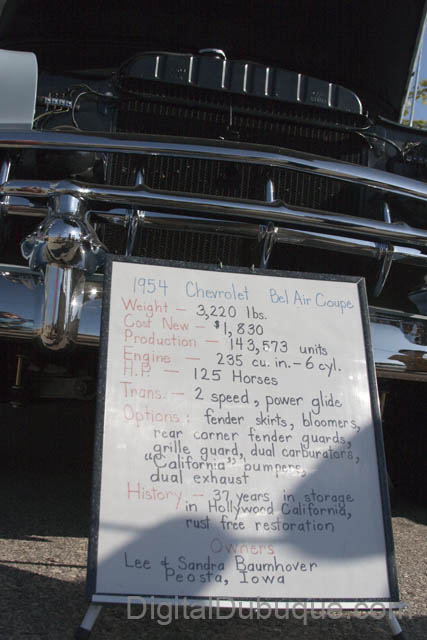 1954 Chevrolet Bel Air Coupe
Weight - 3,220 lbs.
Cost New - $1,830
Production - 143,573 units
Engine - 235 cu. in. - 6 cyl.
H.P. - 125 Horses
Trans. - 2 speed, power glide
Options: fender skirts, bloomers,
rear corner fender guards,
grille guard, dual carburators,
"California" bumpers,
dual exhaust
History - 37 years in storage
in Hollywood California,
rust free restoration
Owners
Lee & Sandra Baumhover
Peosta, Iowa
DigitalDubuque.com